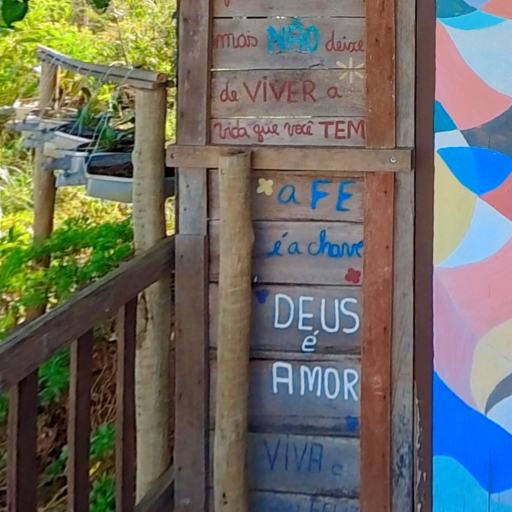 mas NÃO deixe
de VIVER a
vida que você TEM
a FÉ
é a chave
DEUS
é
AMOR
VIVA e